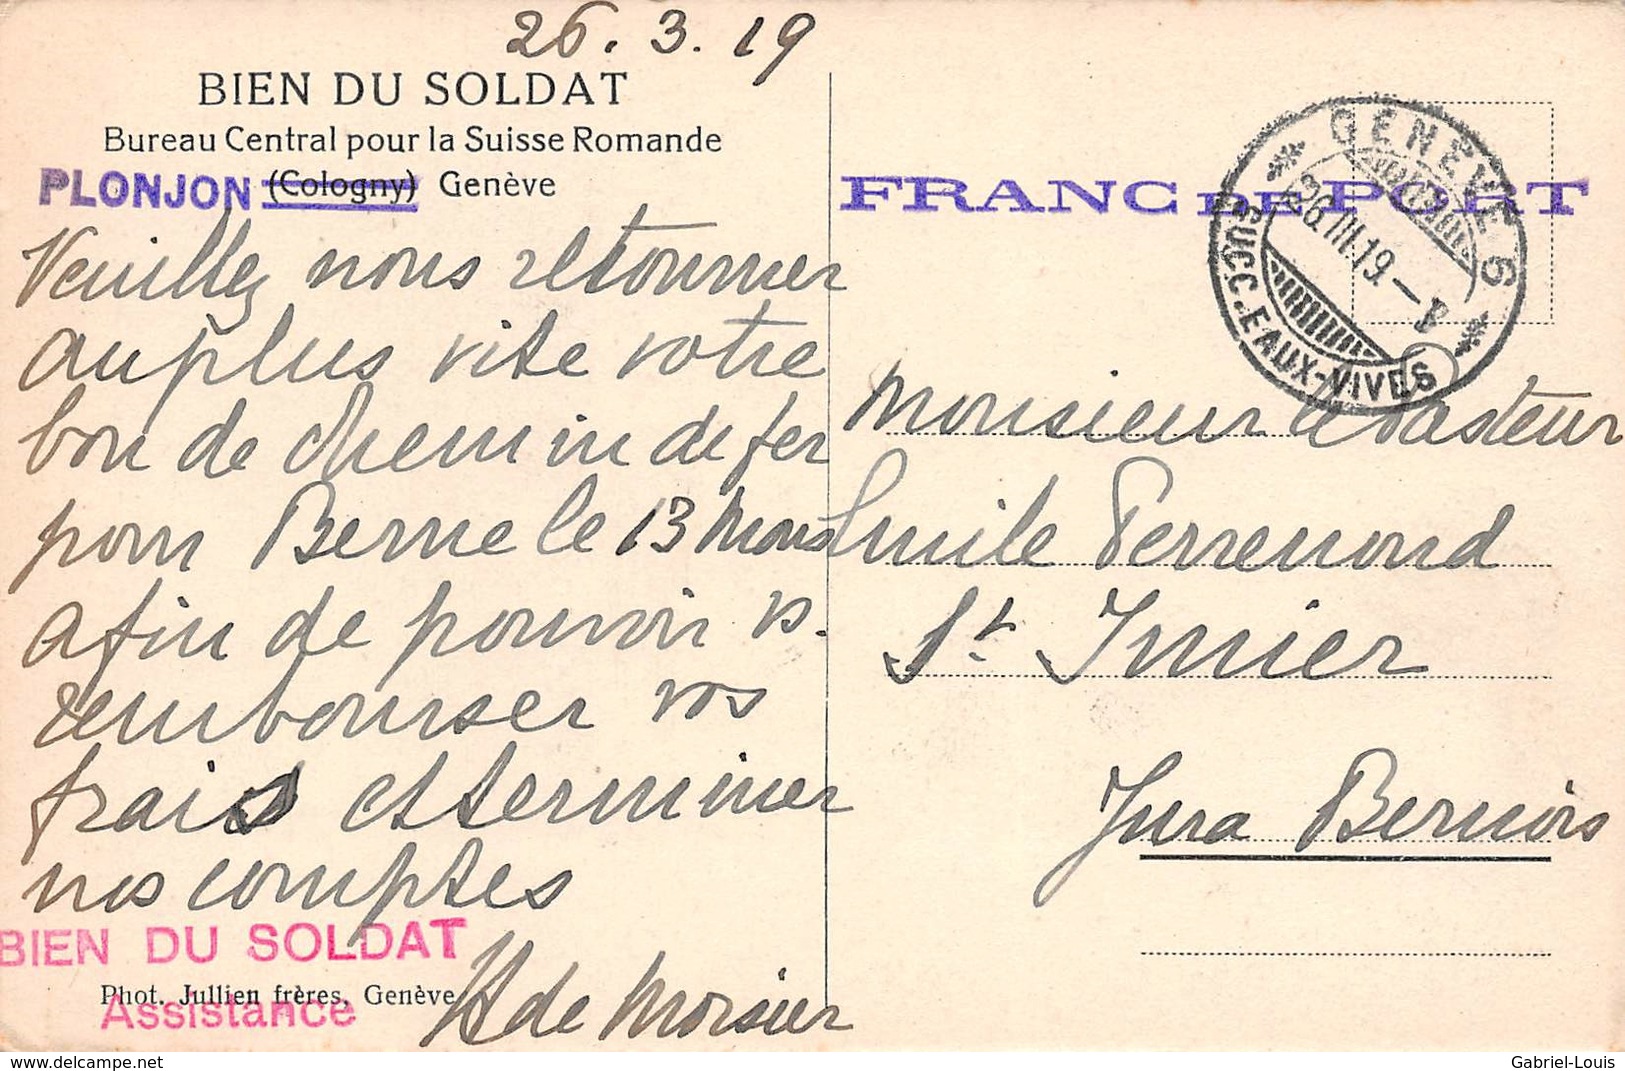 26. 3. 19
BIEN DU SOLDAT
Bureau Central pour la Suisse Romande
PLONJON (Cologny) Genève
Veuillez nous retourner
au plus vite votre
bon de chemin de fer
pour Berne le 13 Mars
afin de pouvoir vs.
rembourser vos
frais et terminer
nos comptes
BIEN DU SOLDAT
Phot. Jullien frères, Genève
Assistance
H de Morsier
FRANC DE PORT
GENEVE 6
26.III.19
SUCC. EAUX-VIVES
Monsieur le Pasteur
Emile Perrenoud
St. Imier
Jura Bernois
www.delcampe.net
Gabriel-Louis